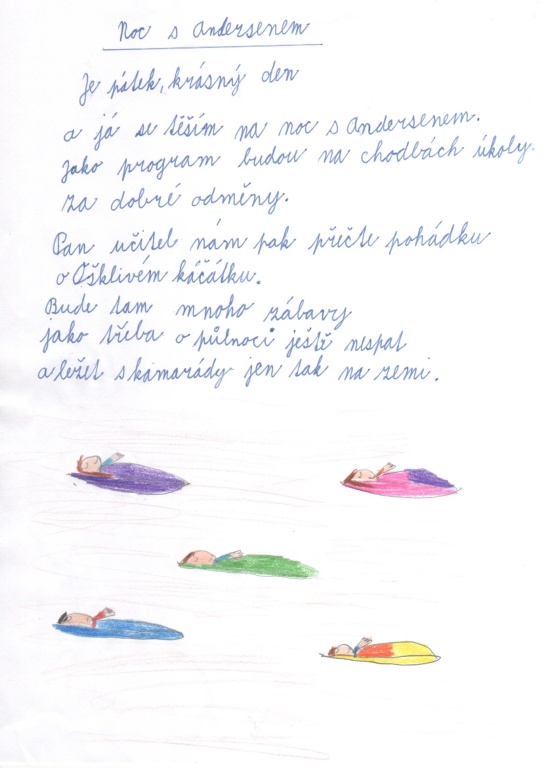 Noc s Andersenem
Je pátek, krásný den
a já se těším na noc s Andersenem.
Jako program budou na chodbách úkoly
za dobré odměny.
Pan učitel nám pak přečte pohádku
o Ošklivém káčátku.
Bude tam mnoho zábavy
jako třeba o půlnoci ještě nespat
a ležet s kamarády jen tak na zemi.